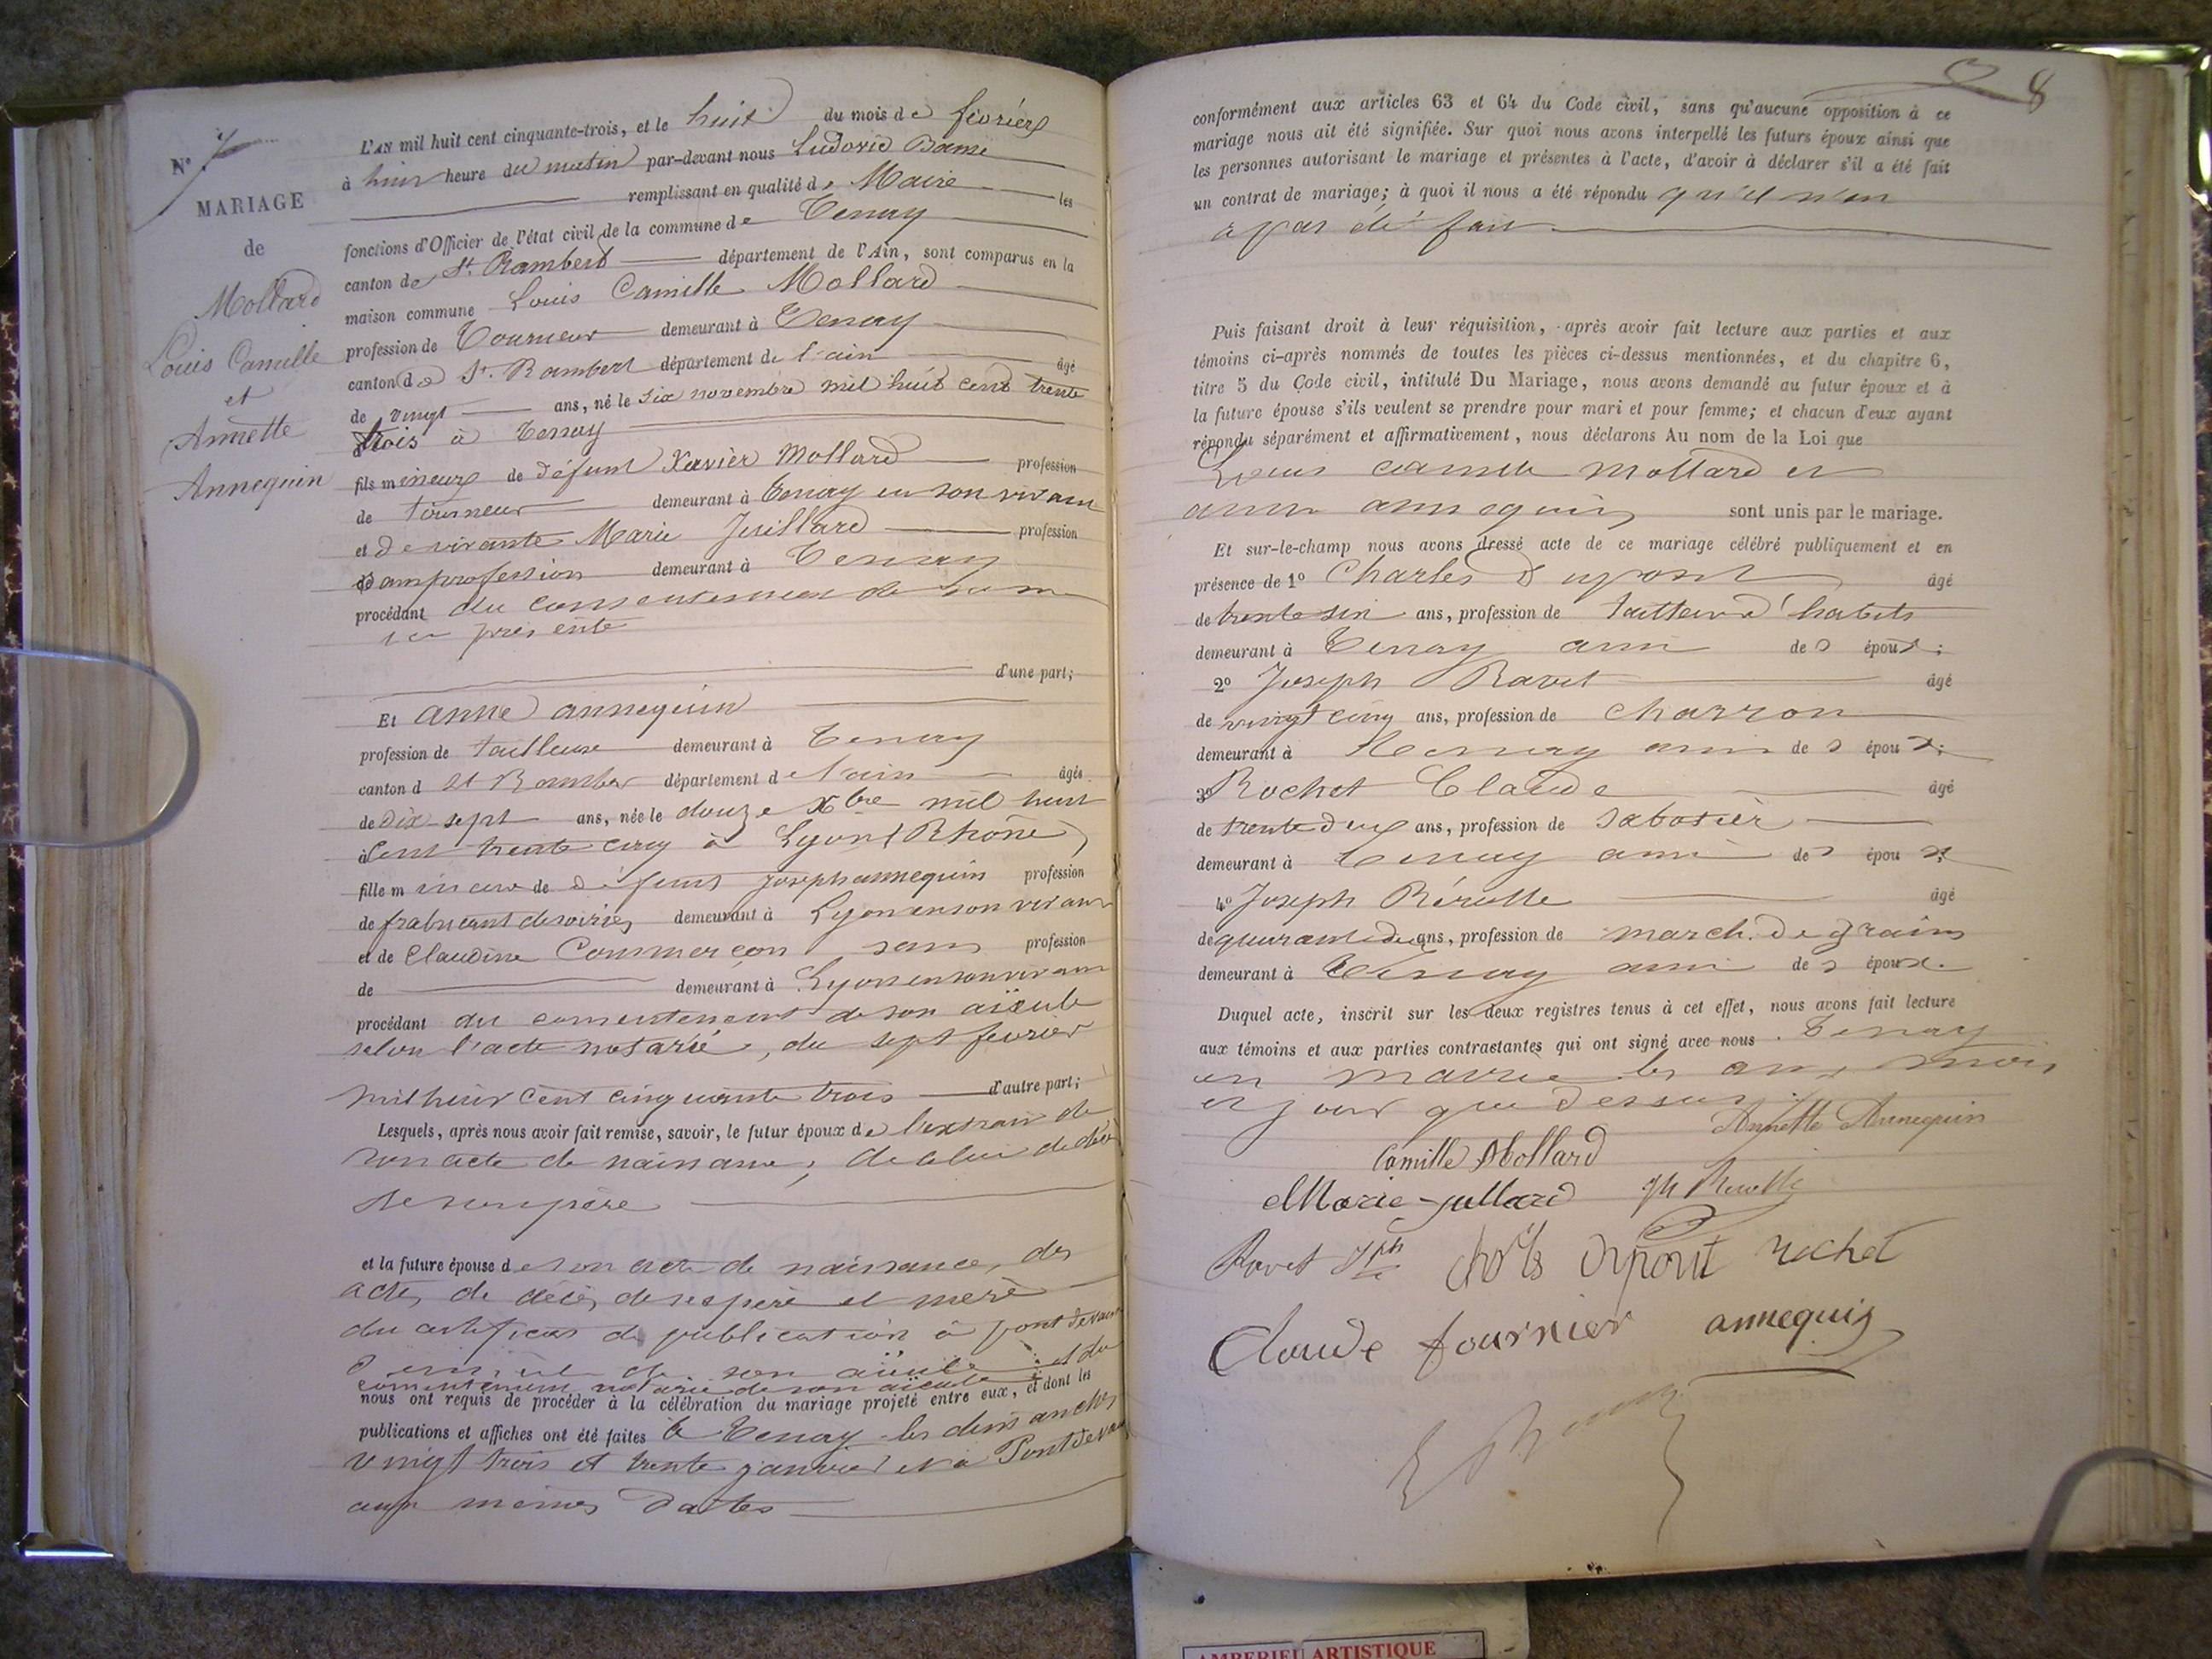 N° 7
MARIAGE
de
Mollard
Louis Camille
et
Annette
Annequin
L'AN mil huit cent cinquante-trois, et le huit du mois de février
à huit heure du matin par-devant nous Ludovic
remplissant en qualité de Maire les
fonctions d'Officier de l'état civil de la commune de Tenay
canton de St. Rambert département de l'Ain, sont comparus en la
maison commune Louis Camille Mollard
profession de Tourneur demeurant à Tenay
canton de St. Rambert département de l'ain âgé
de vingt ans, né le six novembre mil huit cent trente
trois à Tenay
fils mineur de défunt Xavier Mollard profession
de tourneur demeurant à Tenay en son vivant
et de vivante Marie Juillard profession
demeurant à Tenay
procédant du consentement de
ici présente
d'une part;
Et anne annequin
profession de tailleuse demeurant à Tenay
canton d St Rambert département de l'ain âgée
de dix-sept ans, née le douze Xbre mil huit
cent trente cinq à Lyon (Rhône)
fille mineure de défunt Joseph annequin profession
de fabricant de soieries demeurant à Lyon en son vivant
et de Claudine Commerçon sans profession
de demeurant à Lyon en son vivant
procédant du consentement de son aïeule
selon l'acte notarié, du sept février
mil huit cent cinquante trois d'autre part;
Lesquels, après nous avoir fait remise, savoir, le futur époux de l'extrait de
son acte de naissance, de celui de décès
de son père
et la future épouse de son acte de naissance, des
actes de décès de ses père et mère
du certificat de publication à pont de vaux
de son aïeule et du
consentement notarié de son aïeule
nous ont requis de procéder à la célébration du mariage projeté entre eux, et dont les
publications et affiches ont été faites à Tenay les dimanches
vingt trois et trente janvier et à Pont de vaux
aux mêmes dates
8
conformément aux articles 63 et 64 du Code civil, sans qu'aucune opposition à ce
mariage nous ait été signifiée. Sur quoi nous avons interpellé les futurs époux ainsi que
les personnes autorisant le mariage et présentes à l'acte, d'avoir à déclarer s'il a été fait
un contrat de mariage; à quoi il nous a été répondu qu'il n'en
a pas été fait
Puis faisant droit à leur réquisition, après avoir fait lecture aux parties et aux
témoins ci-après nommés de toutes les pièces ci-dessus mentionnées, et du chapitre 6,
titre 5 du Code civil, intitulé Du Mariage, nous avons demandé au futur époux et à
la future épouse s'ils veulent se prendre pour mari et pour femme; et chacun d'eux ayant
répondu séparément et affirmativement, nous déclarons Au nom de la Loi que
Louis camille mollard et
anne annequin sont unis par le mariage.
Et sur-le-champ nous avons dressé acte de ce mariage célébré publiquement et en
présence de 1° Charles Dupont âgé
de trente six ans, profession de tailleur d'habits
demeurant à Tenay ami des époux;
2° Joseph Ravet âgé
de vingt cinq ans, profession de charron
demeurant à Tenay ami des époux;
3° Rochet Claude âgé
de trente deux ans, profession de sabotier
demeurant à Tenay ami des époux;
4° Joseph Rérolle âgé
de quarante deux ans, profession de march. de grains
demeurant à Tenay ami des époux.
Duquel acte, inscrit sur les deux registres tenus à cet effet, nous avons fait lecture
aux témoins et aux parties contractantes qui ont signé avec nous. Tenay
en mairie les an, mois
et jour que dessus.
Annette Annequin
Camille Mollard
Marie-jullard
Ravet Jph Dupont rochet
Claude fournier annequin
AMBERIEU ARTISTIQUE